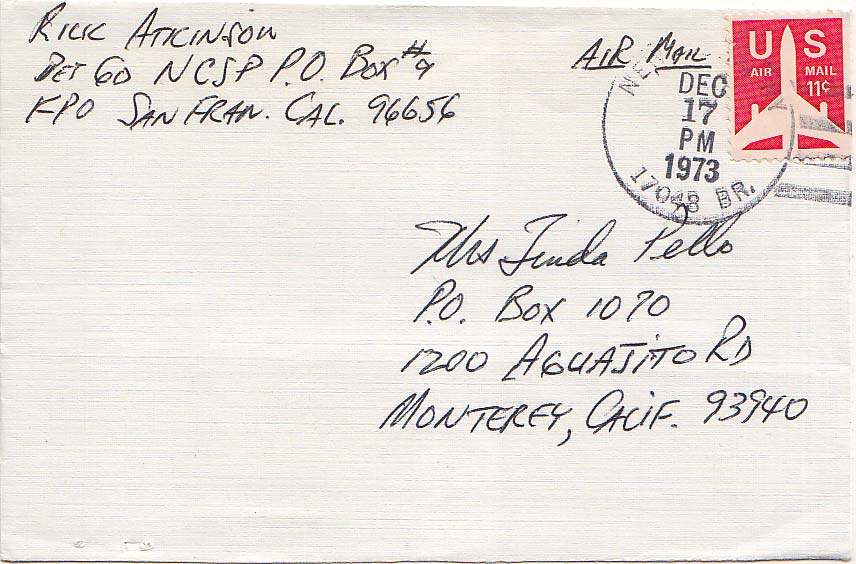 Rick Atkinson
Det 60 NCSP P.O. Box #9
FPO San Fran. Cal. 96656
Air Mail
US
AIR MAIL
11¢
DEC
17
PM
1973
17048 BR.
Mrs Linda Pello
P.O. Box 1070
1200 Aguajito Rd
Monterey, Calif. 93940